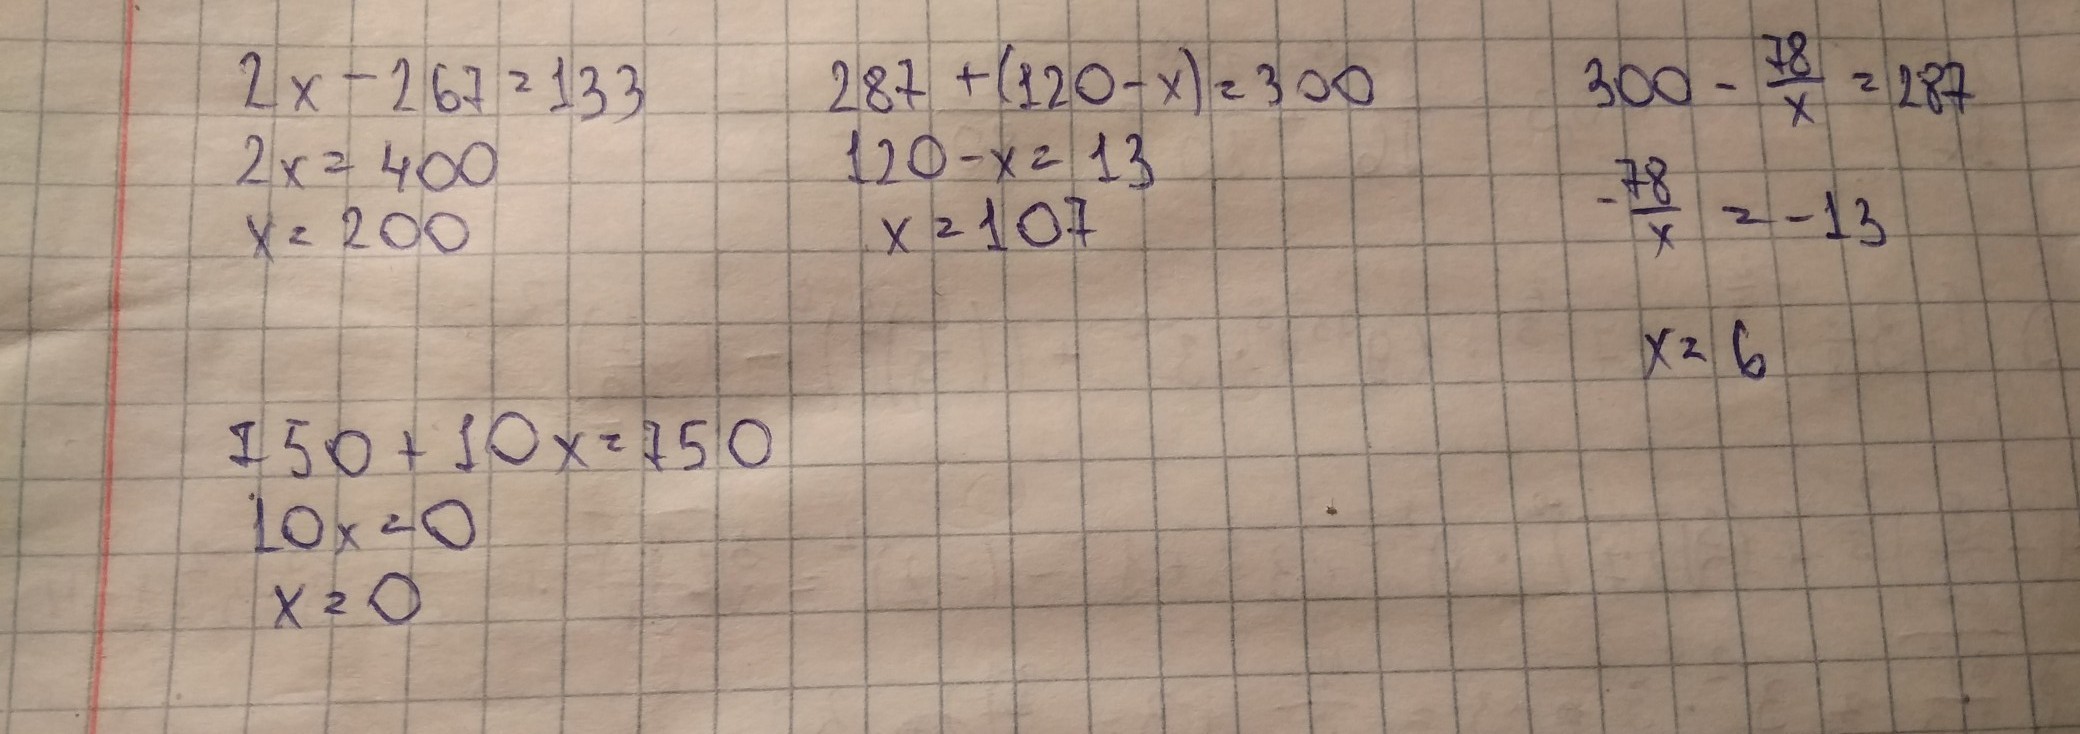 2x - 267 = 133
2x = 400
x = 200
287 + (120 - x) = 300
120 - x = 13
x = 107
300 - 78/x = 287
-78/x = -13
x = 6
750 + 10x = 750
10x = 0
x = 0